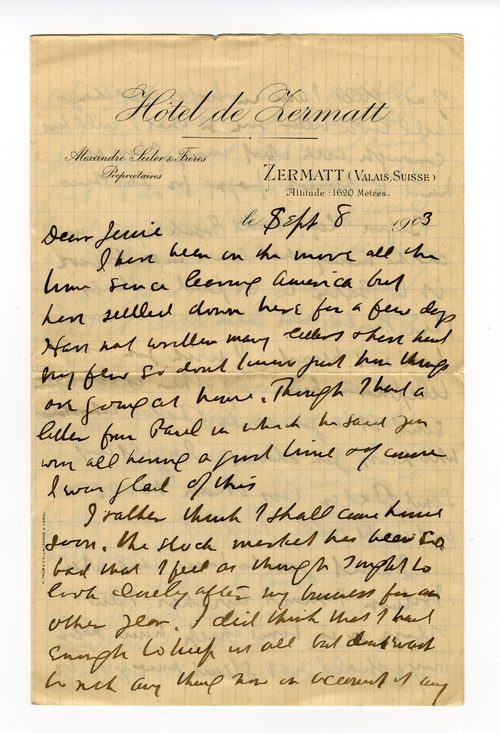 Hôtel de Zermatt
Alexandre Seiler & Frères
Propriétaires
ZERMATT (VALAIS, SUISSE)
Altitude: 1620 Mètres.
le Sept 8 1903
Dear Jennie
I have been on the move all the
time since leaving America but
have settled down here for a few days
Have not written many letters & have had
very few so dont know just how things
are going at home. Though I had a
letter from Paul in which he said you
were all having a good time & of course
I was glad of this
I rather think I shall come home
soon. The stock market has been so
bad that I feel as though I ought to
look closely after my business for an
other year. I did think that I had
enough to keep us all but dont want
to risk any thing now on account of any